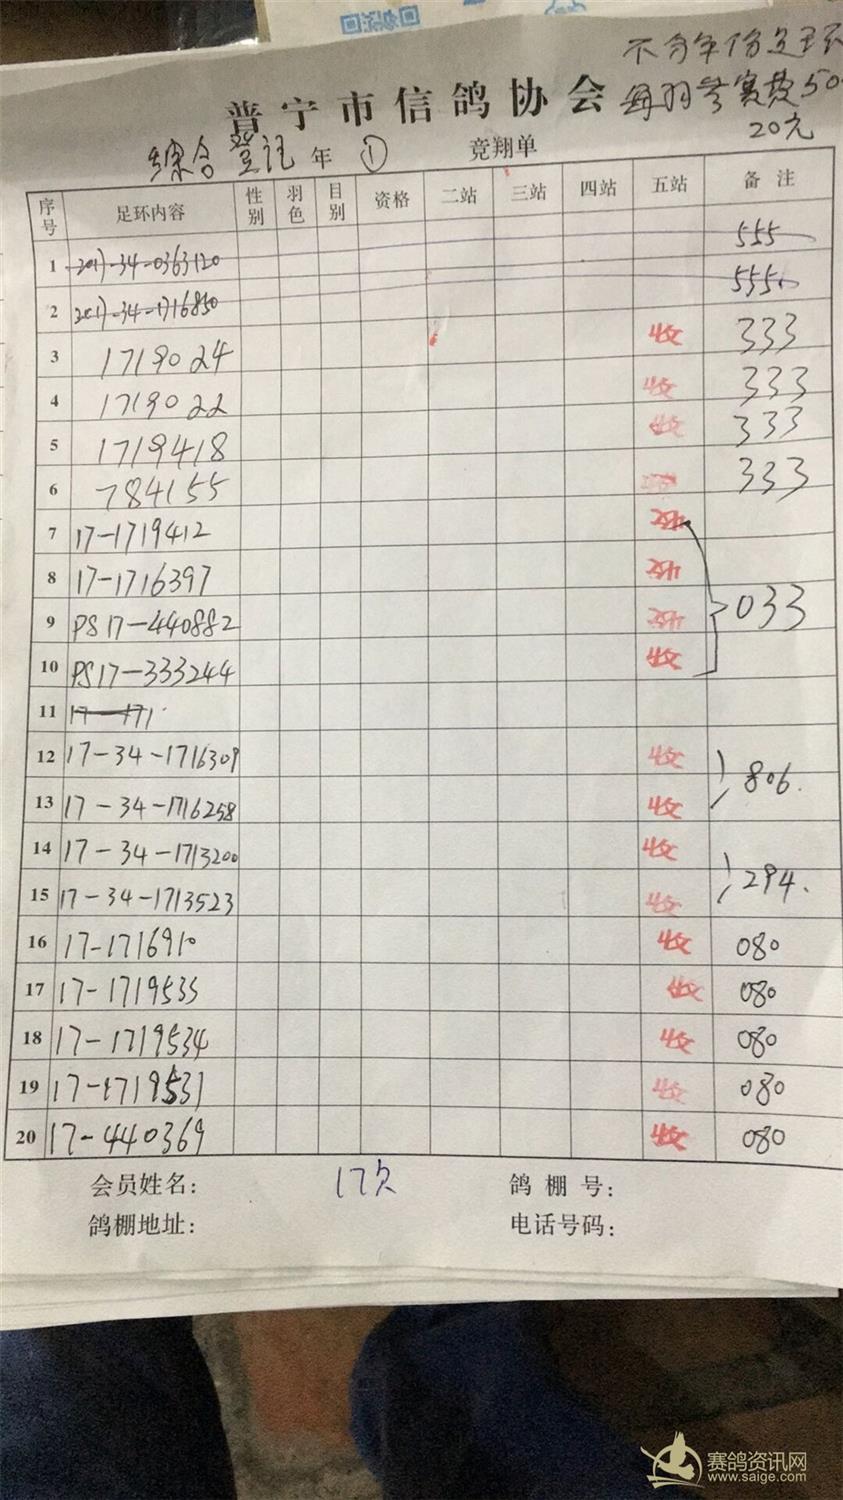 不分年份足环
普宁市信鸽协会 每羽参赛费50
20元
综合登记 年 ① 竞翔单
序号 足环内容 性别 羽色 目别 资格 二站 三站 四站 五站 备注
1 2017-34-0363120 555
2 2017-34-1716850 555
3 1719024 收 333
4 1719022 收 333
5 1719418 收 333
6 784155 收 333
7 17-1719412 收
8 17-1716397 收
033
9 PS17-440882 收
10 PS17-333244 收
11 17-171
12 17-34-1716309 收
806.
13 17-34-1716258 收
14 17-34-1713200 收
294.
15 17-34-1713523 收
16 17-1716910 收 080
17 17-1719535 收 080
18 17-1719534 收 080
19 17-1719531 收 080
20 17-440369 收 080
会员姓名： 17欠 鸽棚号：
鸽棚地址： 电话号码：
赛鸽资讯网
www.saige.com